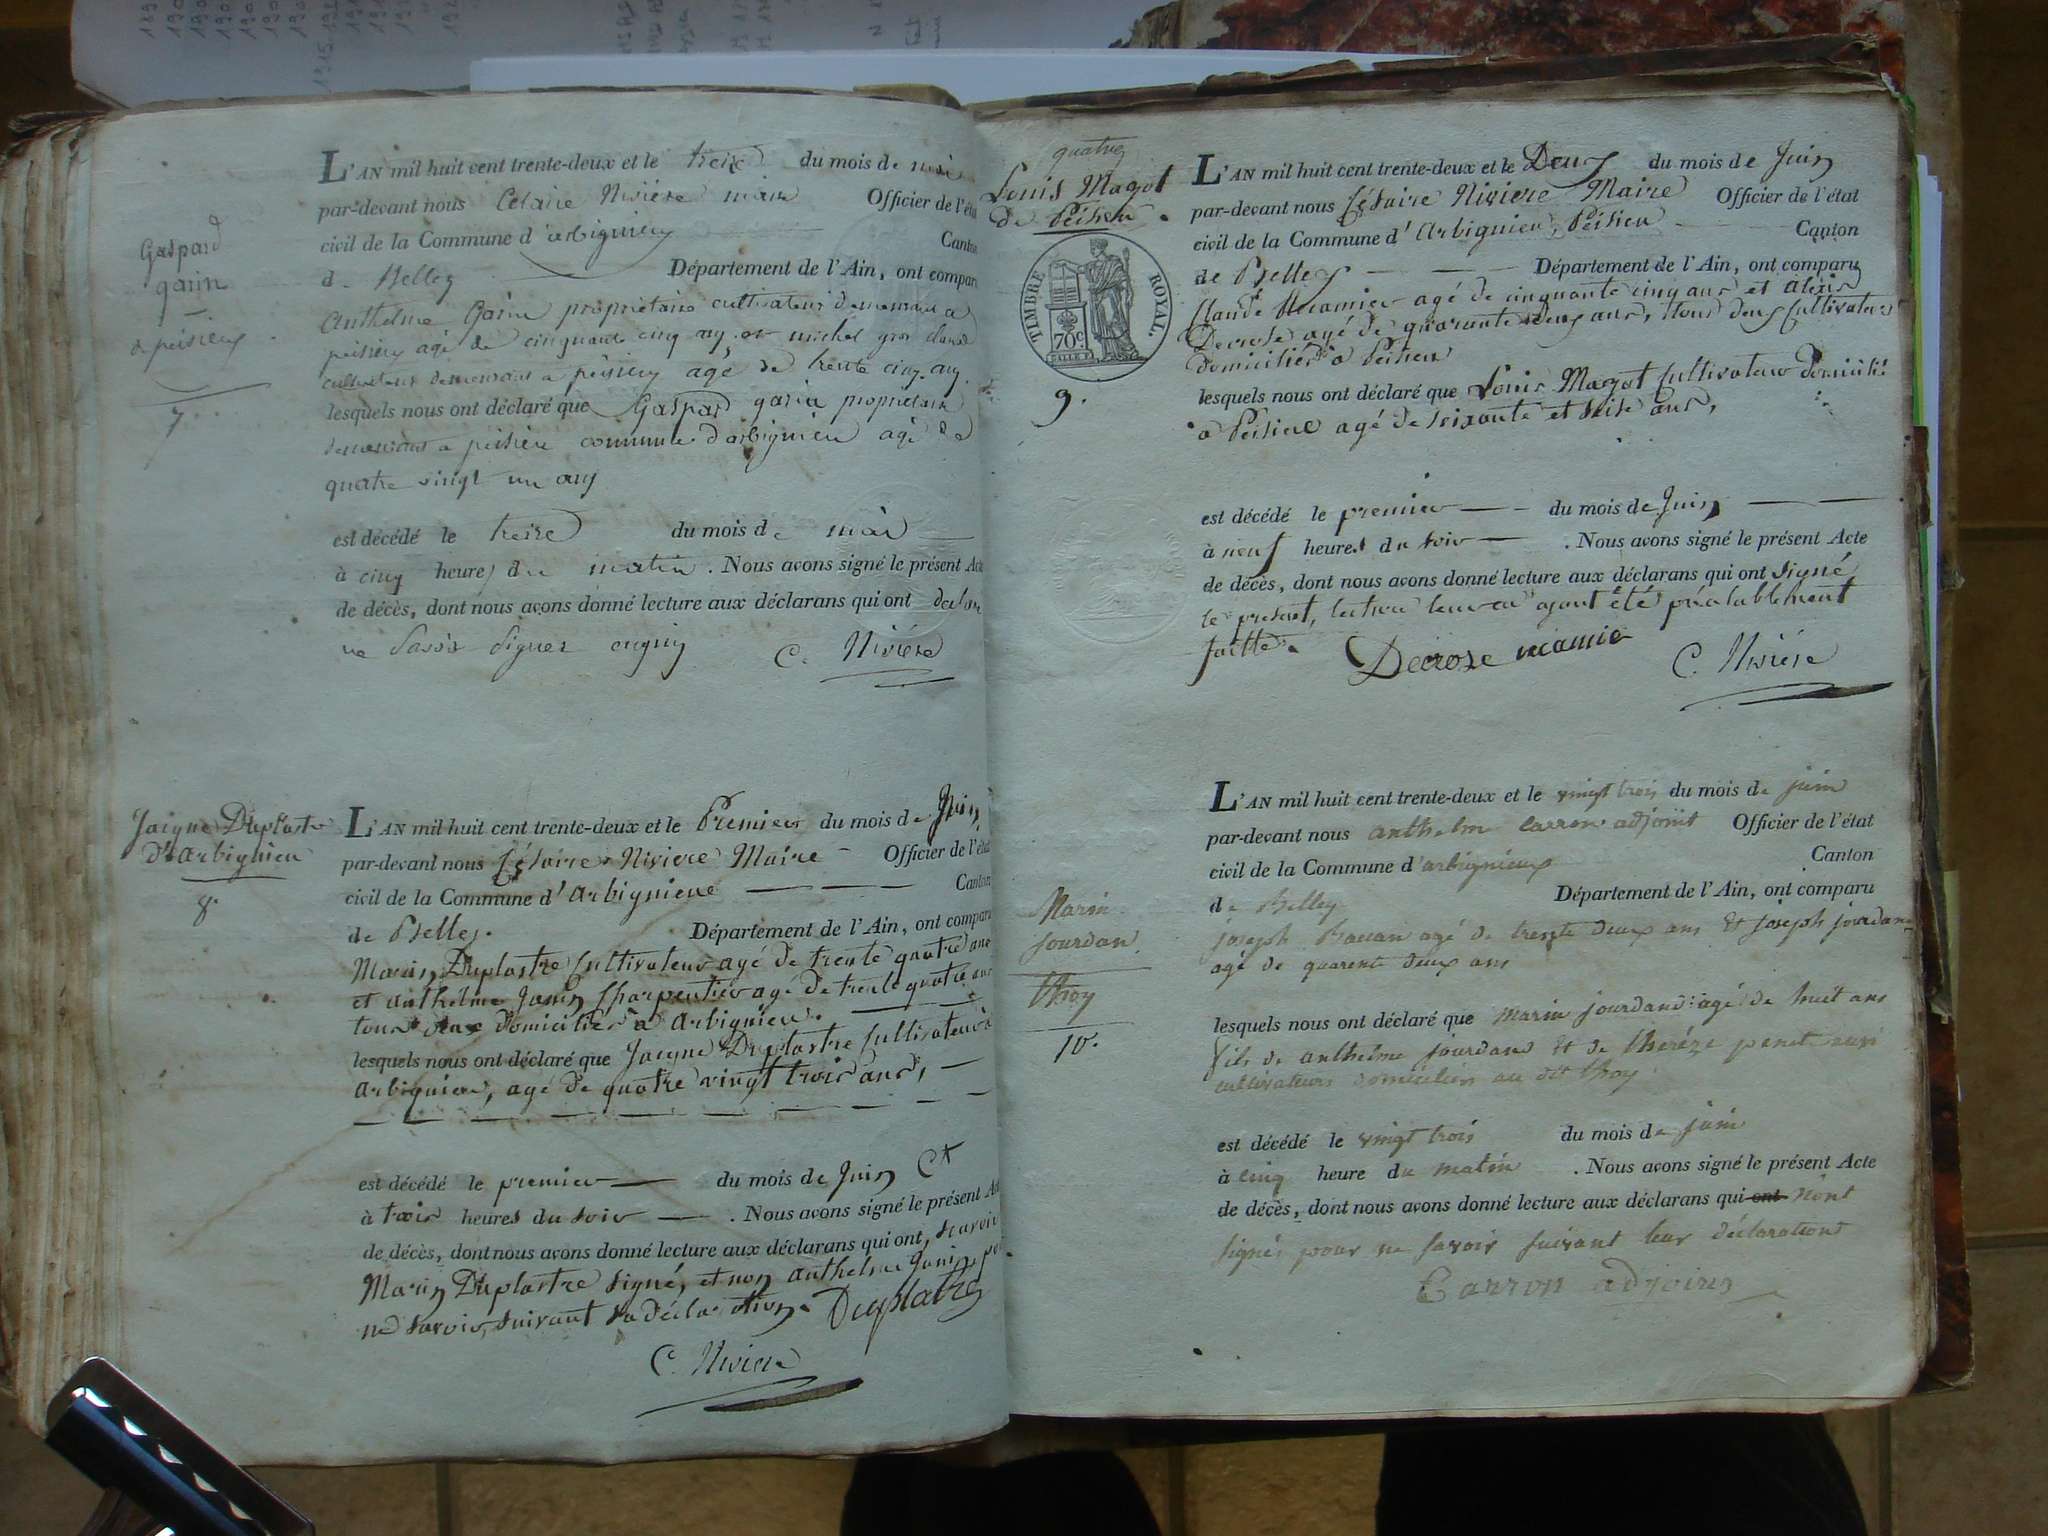 Gaspard
garin
a peisieu
7.
L'AN mil huit cent trente-deux et le treize du mois de mai
par-devant nous Cesaire Nivière maire Officier de l'état
civil de la Commune d'arbignieu Canton
de Belley Département de l'Ain, ont comparu
Anthelme Garin propriétaire cultivateur demeurant a
peisieu agé de cinquante cinq ans et michel gros
cultivateur demeurant a peisieu agé de trente cinq ans
lesquels nous ont déclaré que Gaspard garin propriétaire
demeurant a peisieu commune d'arbignieu agé de
quatre vingt un ans
est décédé le treize du mois de mai
à cinq heures du matin. Nous avons signé le présent Acte
de décès, dont nous avons donné lecture aux déclarans qui ont
ne savoir signer
C. Nivière
Jaique Duplastre
d'Arbignieu
8.
L'AN mil huit cent trente-deux et le Premier du mois de Juin
par-devant nous Césaire Niviere Maire Officier de l'état
civil de la Commune d'Arbignieue Canton
de Belley. Département de l'Ain, ont comparu
Marin Duplastre Cultivateur agé de trente quatre ans
et anthelme Janin Charpentier agé de trente quatre ans
tous deux domiciliés a Arbignieu.
lesquels nous ont déclaré que Jaique Duplastre Cultivateur à
Arbignieu, agé de quatre vingt trois ans,
est décédé le premier du mois de Juin Ct
à trois heures du soir. Nous avons signé le présent Acte
de décès, dont nous avons donné lecture aux déclarans qui ont, scavoir
Marin Duplastre signé, et non anthelme Janin pour
ne savoir, suivant sa déclaration. Duplatre
C. Niviere
quatre
Louis Magot
de Peisieu.
TIMBRE ROYAL.
70c.
9.
L'AN mil huit cent trente-deux et le Deux du mois de Juin
par-devant nous Césaire Niviere Maire Officier de l'état
civil de la Commune d'Arbignieu, Peisieu Canton
de Belley Département de l'Ain, ont comparu
Claude Récamier agé de cinquante cinq ans et alexis
Decrose agé de quarante deux ans, tous deux Cultivateurs
domiciliés à Peisieu
lesquels nous ont déclaré que Louis Magot Cultivateur domicilié
à Peisieu agé de soixante et seise ans,
est décédé le premier du mois de Juin
à neuf heures du soir. Nous avons signé le présent Acte
de décès, dont nous avons donné lecture aux déclarans qui ont signé
le present, lecture leur en ayant été préalablement
faitte.
Decrose recamie C. Nivière
Marin
Jourdan
thoy
10.
L'AN mil huit cent trente-deux et le vingt trois du mois de juin
par-devant nous anthelme carron adjoint Officier de l'état
civil de la Commune d'arbignieux Canton
de Belley Département de l'Ain, ont comparu
joseph agé de trente deux ans Et joseph jourdan
agé de quarente deux ans
lesquels nous ont déclaré que marin jourdand agé de huit ans
fils de anthelme jourdand Et de thereze
cultivateurs domiciliés au dit thoy
est décédé le vingt trois du mois de juin
à cinq heure du matin. Nous avons signé le présent Acte
de décès, dont nous avons donné lecture aux déclarans qui ont n'ont
signés pour ne savoir suivant leur déclarations
Carron adjoint